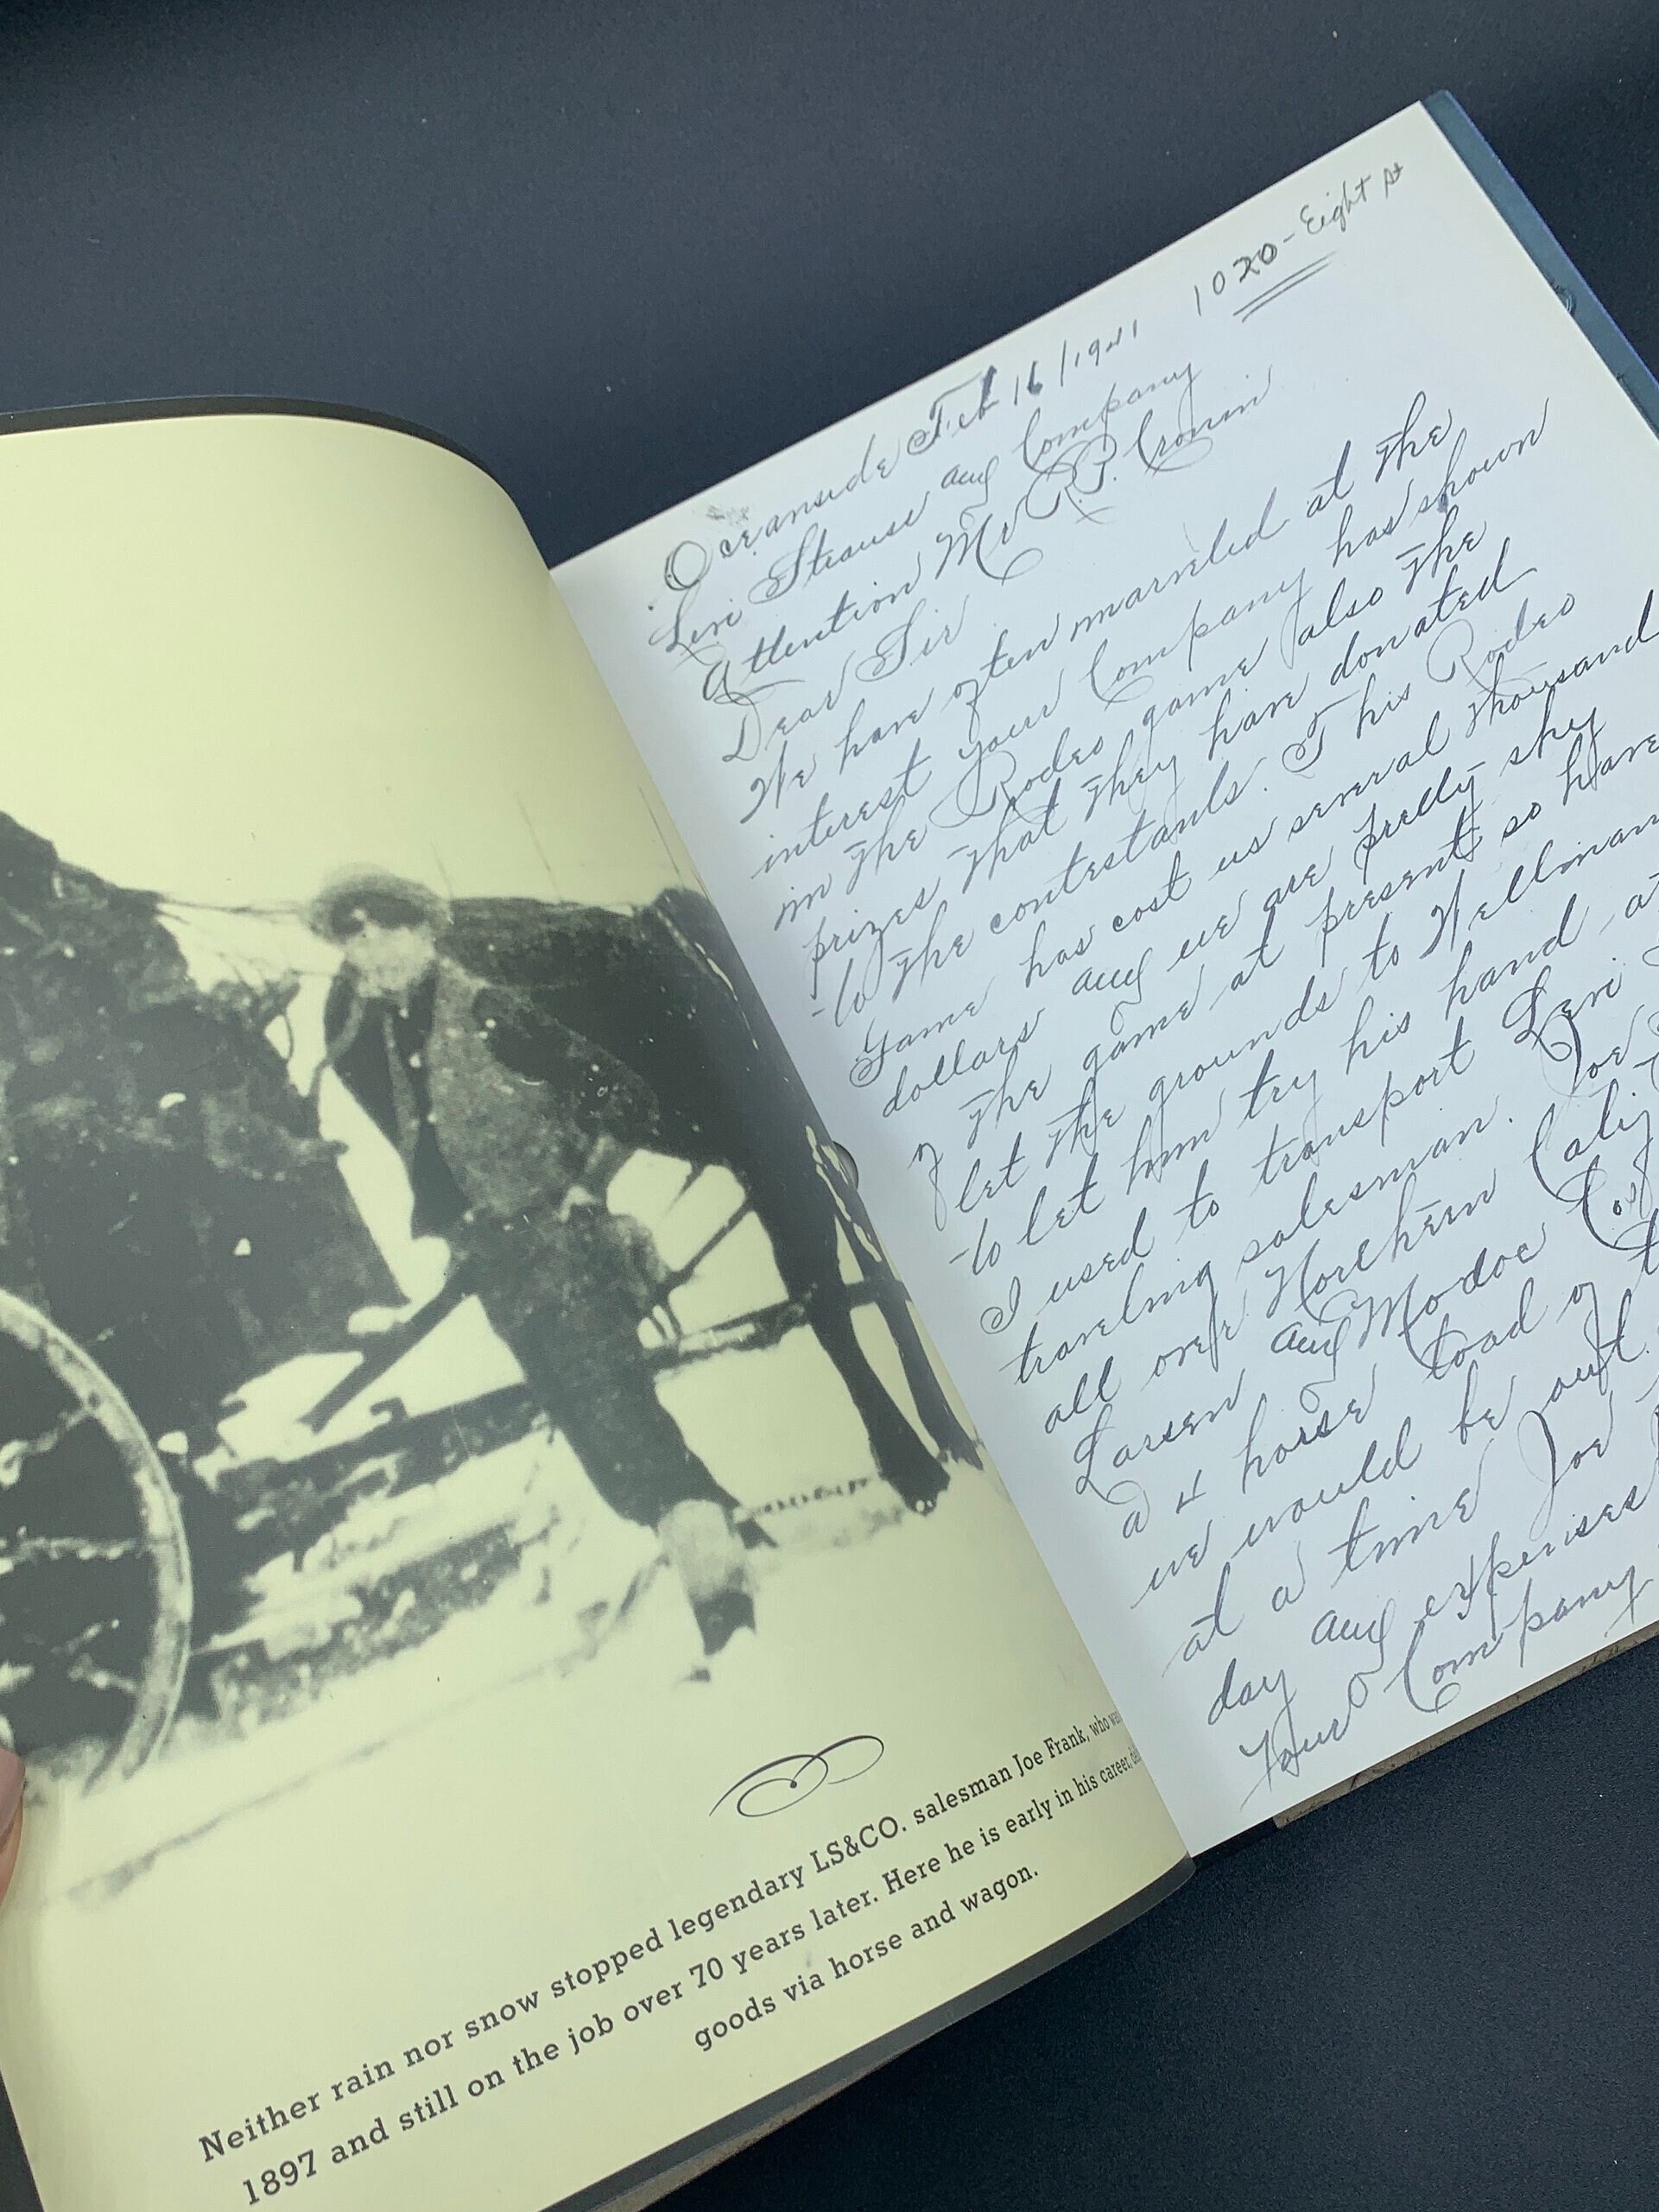 Neither rain nor snow stopped legendary LS&CO. salesman Joe Frank, who was
1897 and still on the job over 70 years later. Here he is early in his career,
goods via horse and wagon.
1020 - Eight St
Oceanside Feb 16/1941
Levi Strauss and Company
Attention Mr R.P. Cronin
Dear Sir
We have often marveled at the
interest your Company has shown
in the Rodeo game also the
prizes that they have donated
to the contestants. This Rodeo
Game has cost us several thousand
dollars and we are pretty shy
of the game at present so have
let the grounds to Wellman
to let him try his hand at
I used to transport Levi
traveling salesman. Joe
all over Northern Calif
Larsen and Modoc Co.
a 4 horse load of
we would be out
at a time Joe
day and expenses
Your Company